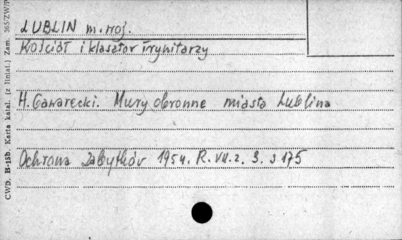 LUBLIN m. woj.
Kościół i klasztor Trynitarzy
H. Gawarecki. Mury obronne miasta Lublina
Ochrona Zabytków 1954. R. VII. z. 3. s 175
CWD. B-15b. Karta katal. (z liniat.) Zam.